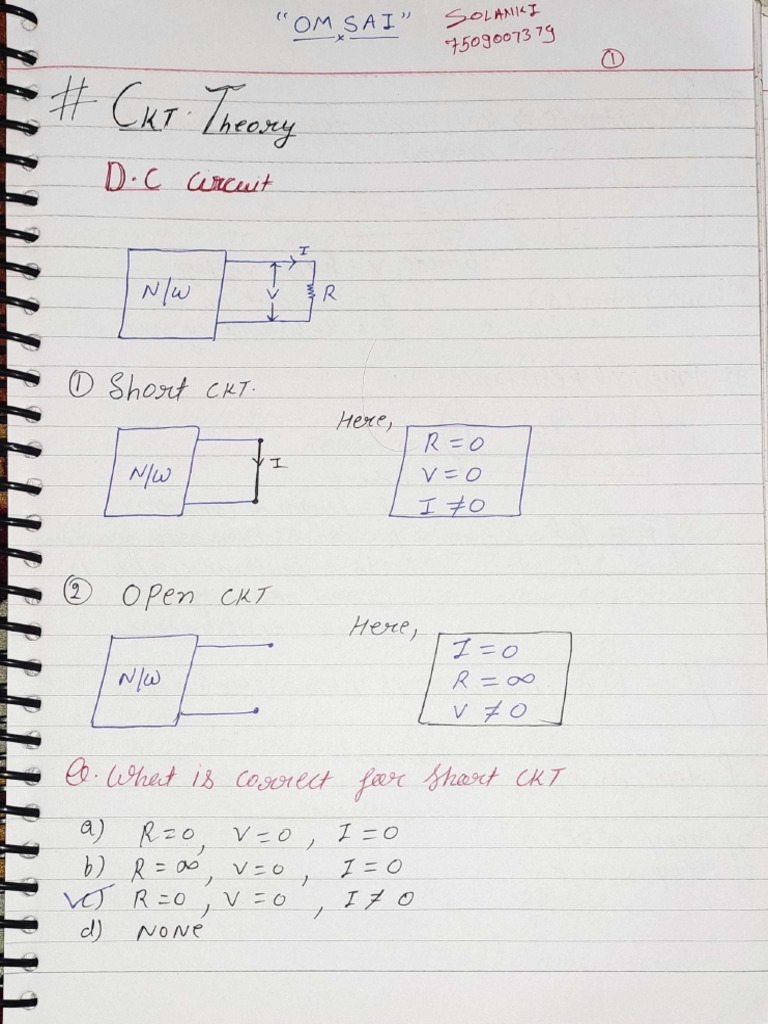 "OM SAI"
SOLANKI
7509007379
①
# CKT. Theory
D.C circuit
N/W
I
V
R
① Short CKT.
N/W
I
Here,
R = 0
V = 0
I ≠ 0
② Open CKT
N/W
Here,
I = 0
R = ∞
V ≠ 0
Q. What is correct for short CKT
a) R = 0, V = 0, I = 0
b) R = ∞, V = 0, I = 0
✓c) R = 0, V = 0, I ≠ 0
d) NONE